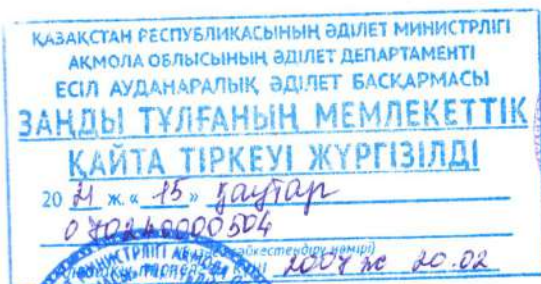 ҚАЗАҚСТАН РЕСПУБЛИКАСЫНЫҢ ӘДІЛЕТ МИНИСТРЛІГІ
АҚМОЛА ОБЛЫСЫНЫҢ ӘДІЛЕТ ДЕПАРТАМЕНТІ
ЕСІЛ АУДАНАРАЛЫҚ ӘДІЛЕТ БАСҚАРМАСЫ
ЗАҢДЫ ТҰЛҒАНЫҢ МЕМЛЕКЕТТІК
ҚАЙТА ТІРКЕУІ ЖҮРГІЗІЛДІ
20 21 ж. « 15 » қаңтар
070240000504
2007 ж 20.02